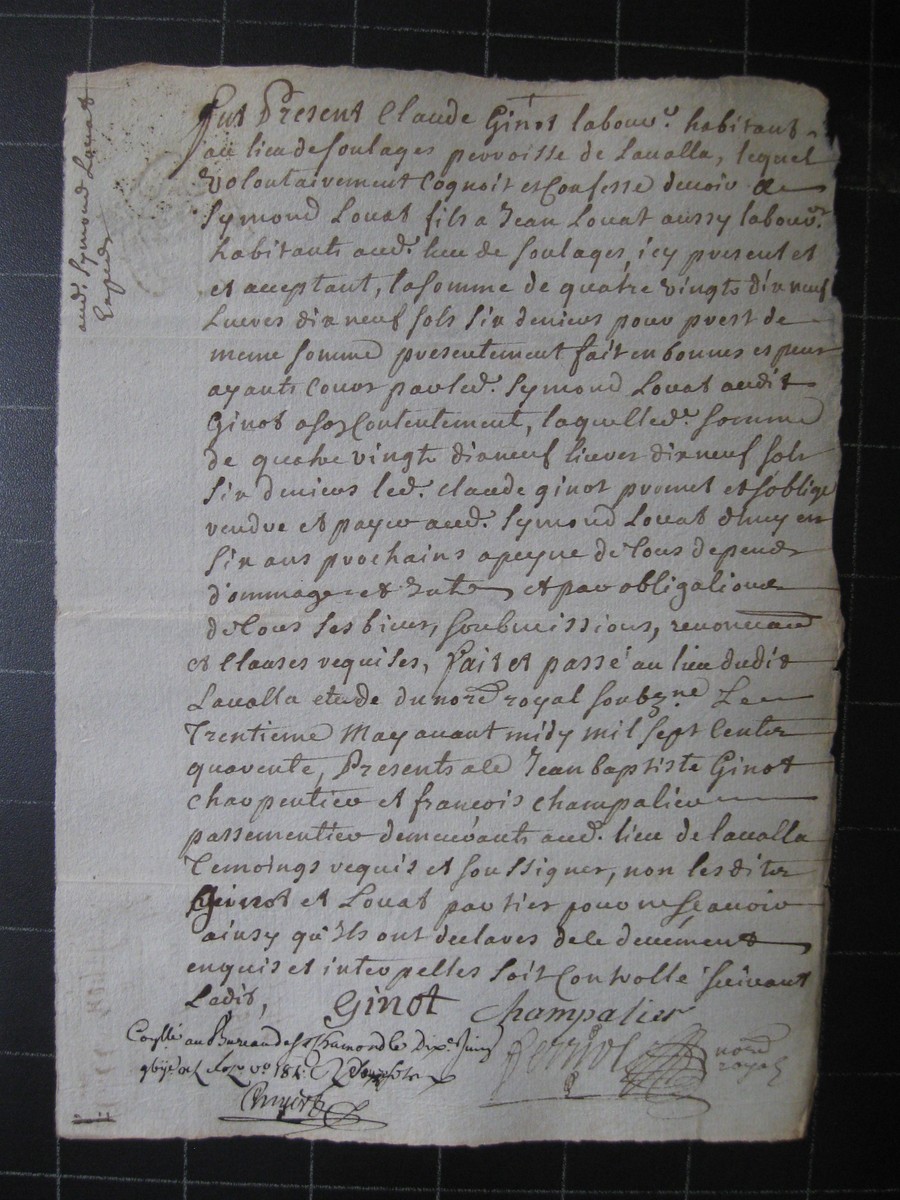 aud. Symond Louat
Expedié
Fut Present Claude Ginot labour. habitant
au lieu de soulages perroisse de Laualla, lequel
volontairement Cognoit et Confesse deuoir a
Symond Louat fils a Jean Louat aussy labour.
habitants aud. lieu de soulages, icy present et
et acceptant, la somme de quatre vingts dix neuf
Liures dix neuf sols six deniers pour prest de
meme somme presentement fait en bonnes especes
ayants Cours par led. Symond Louat audit
Ginot a son Contentement, laquelle de. somme
de quatre vingts dix neuf liures dix neuf sols
six deniers led. Claude ginot promet et s'oblige
rendre et payer aud. Symond Louat d'huy en
six ans prochains a peyne de tous depends
d'ommages et Jnte et par obligations
de tous ses biens, soubmissions, renonciaons
et Clauses requises, fait et passé au lieu dudit
Laualla etude du nore royal soubzne Le
Trentieme May auant midy mil sept Cents
quarente, Presents a ce Jean baptiste Ginot
charpentier et francois champalier
passementier demeurants aud. lieu de laualla
Temoings requis et soussignes, non les dites
Ginot et Louat parties pour ne sçauoir
ainsy qu'Ils ont declares de ce deuement
enquis et interpelles soit Controlle suiuant
Ledit, Ginot Champalier
Conllé au Bureau de St Chamond le Dix. Juin
fo. vo. 18
nore
royal